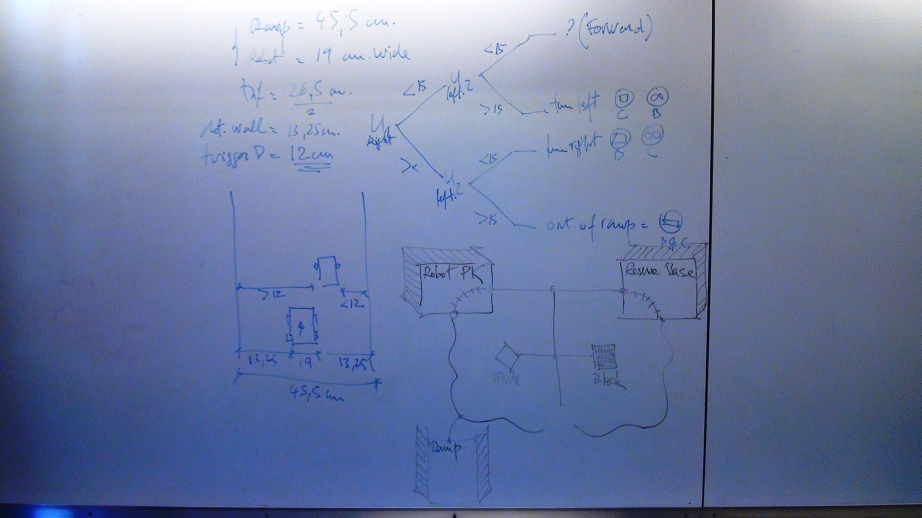 Ramp = 45,5 cm.
Robot = 19 cm. wide
26,5 cm.
2
dst. wall = 13,25 cm.
trigger D = 12 cm
U right
<15
>x
U left?
<15
? (Forward)
>15
turn left
C
B
U left?
<15
turn right
B
C
>15
out of ramp =
B & C
>12
<12
13,25
19
13,25
45,5 cm
Robot PK
Rescue Base
White
Black
Ramp